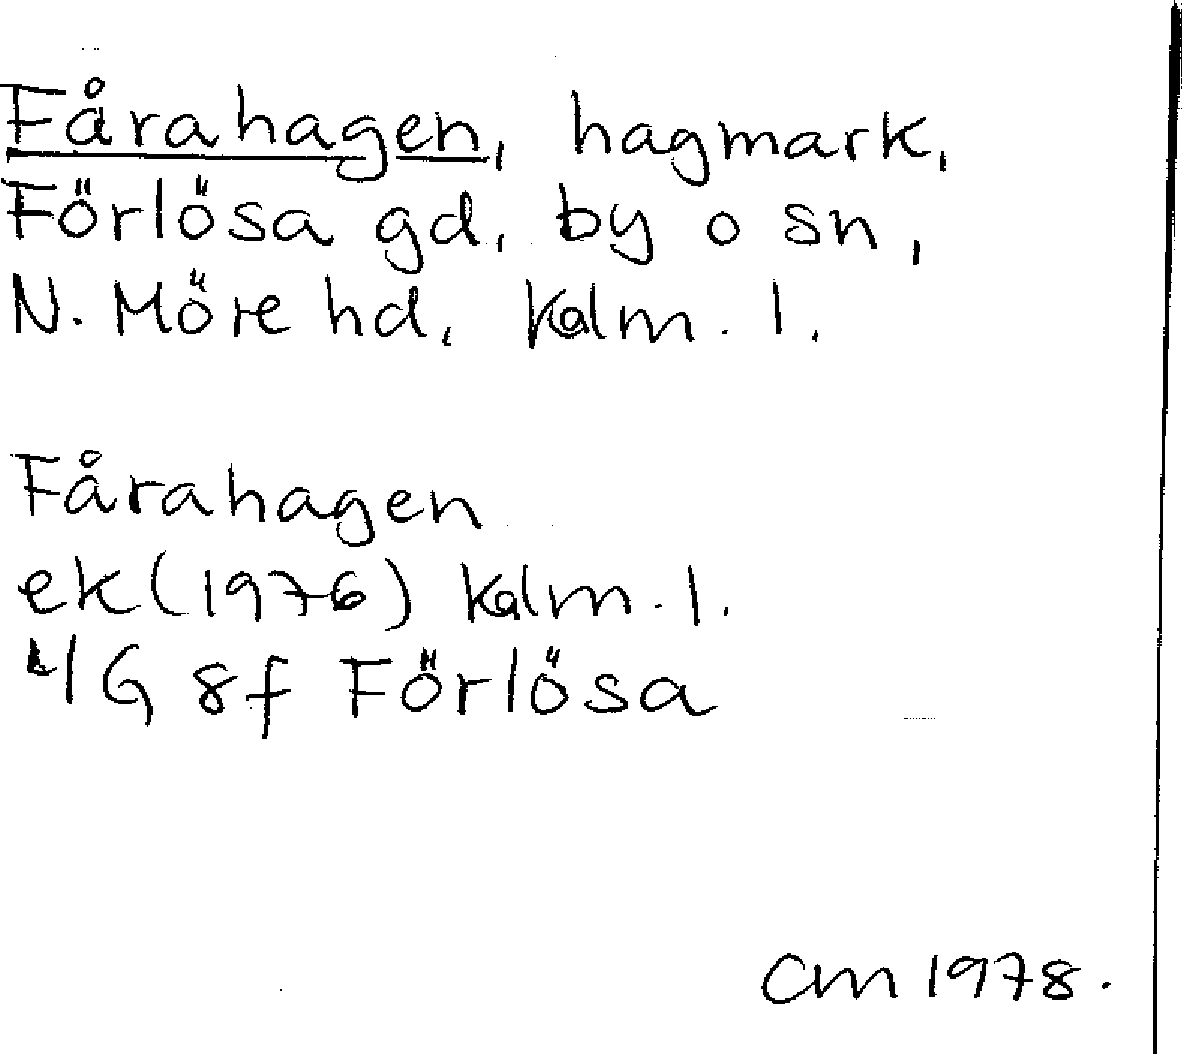 Fårahagen, hagmark,
Förlösa gd, by o sn,
N. Möre hd, Kalm. l.
Fårahagen
ek (1976) Kalm. l.
4G 8f Förlösa
Cm 1978.